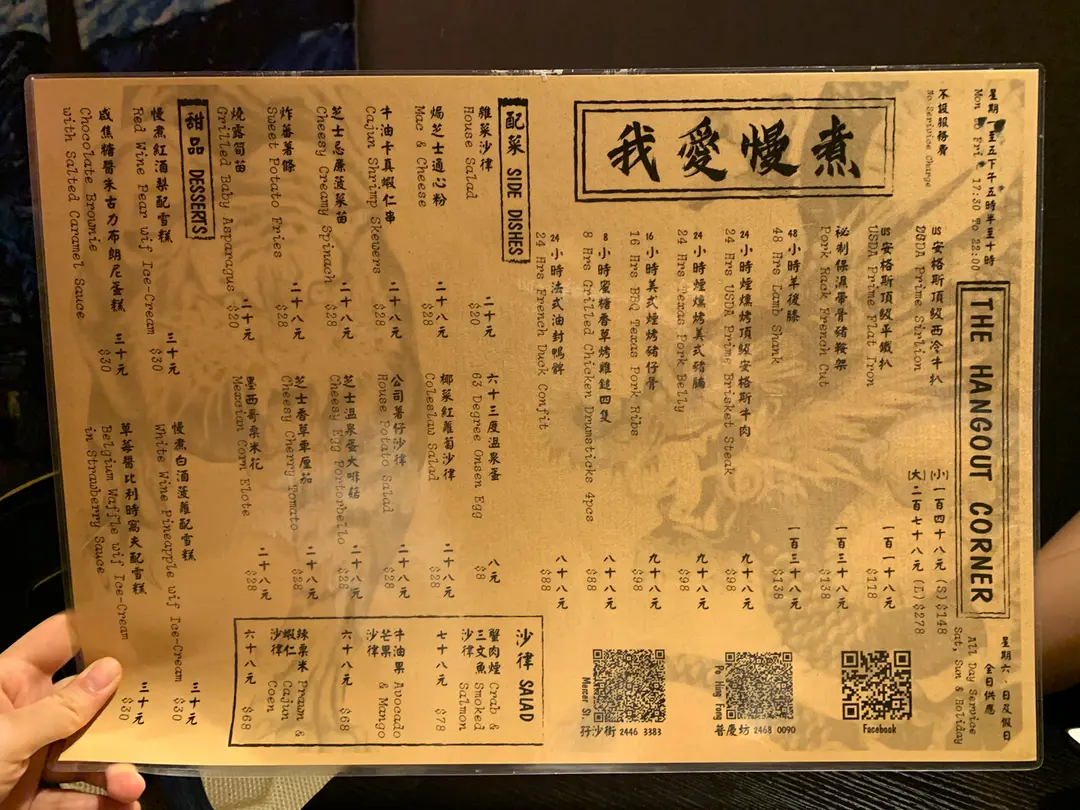 星期一至五下午五時半至十時
Mon to Fri, 17:30 To 22:00
不設服務費
No Serivice Charge
THE HANGOUT CORNER
星期六、日及假日
全日供應
All Day Service
Sat, Sun & Holiday
我愛慢煮
US安格斯頂級西冷牛扒
USDA Prime Sirlion
(小)一百四十八元 (S) $148
(大)二百七十八元 (L) $278
US安格斯頂級平鐵扒 一百一十八元
USDA Prime Flat Iron $118
秘制保濕帶骨豬鞍架 一百三十八元
Pork Rack French Cut $138
48小時羊後膝 一百三十八元
48 Hrs Lamb Shank $138
24小時煙燻烤頂級安格斯牛肉 九十八元
24 Hrs USDA Prime Brisket Steak $98
24小時煙燻烤美式豬腩 九十八元
24 Hrs Texas Pork Belly $98
16小時美式煙烤豬仔骨 九十八元
16 Hrs BBQ Texas Pork Ribs $98
8小時蜜糖香草烤雞鎚四隻 八十八元
8 Hrs Grilled Chicken Drumsticks 4pcs $88
24小時法式油封鴨髀 八十八元
24 Hrs French Duck Confit $88
Facebook
Po Hing Fong
普慶坊 2468 0090
Mercer St.
孖沙街 2446 3383
配菜 SIDE DISHES
雜菜沙律 二十元
House Salad $20
焗芝士通心粉 二十八元
Mac & Cheese $28
牛油卡真蝦仁串 二十八元
Cajun Shrimp Skewers $28
芝士忌廉菠菜苗 二十八元
Cheesy Creamy Spinach $28
炸蕃薯條 二十八元
Sweet Potato Fries $28
燒露筍苗 二十元
Grilled Baby Asparagus $20
六十三度溫泉蛋 八元
63 Degree Onsen Egg $8
椰菜紅蘿蔔沙律 二十八元
Coleslaw Salad $28
公司薯仔沙律 二十八元
House Potato Salad $28
芝士溫泉蛋大啡菇 二十八元
Cheesy Egg Portorbello $28
芝士香草車厘茄 二十八元
Cheesy Cherry Tomato $28
墨西哥粟米花 二十八元
Mexcian Corn Elote $28
沙律 SALAD
蟹肉煙三文魚沙律
Crab & Smoked Salmon
七十八元 $78
牛油果芒果沙律
Avocado & Mango
六十八元 $68
辣粟米蝦仁沙律
Prawn & Cajun Coen
六十八元 $68
甜品 DESSERTS
慢煮紅酒梨配雪糕 三十元
Red Wine Pear wif Ice-Cream $30
咸焦糖醬朱古力布朗尼蛋糕 三十元
Chocolate Brownie
with Salted Caramel Sauce $30
慢煮白酒菠蘿配雪糕 三十元
White Wine Pineapple wif Ice-Cream $30
草莓醬比利時窩夫配雪糕 三十元
Belgium Waffle wif Ice-Cream
in Strawberry Sauce $30